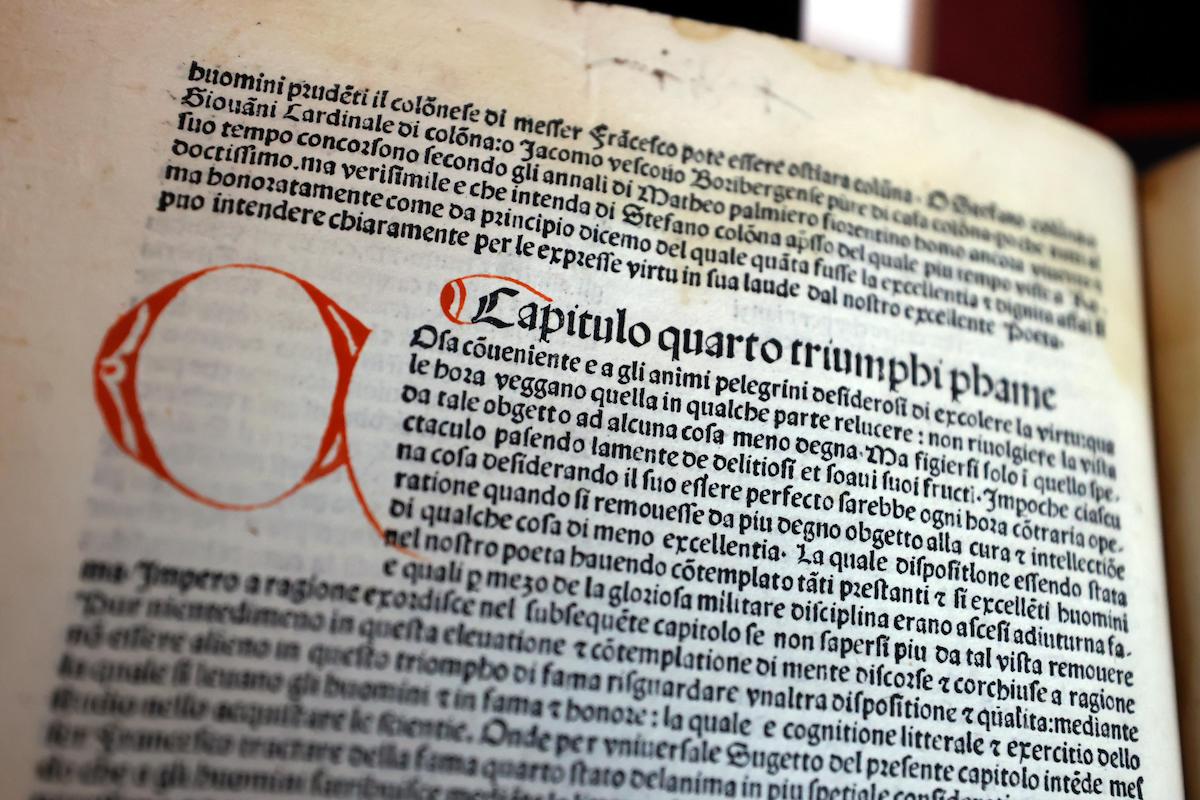 huomini prudẽti il colõnese di messer Frãcesco pote essere ostiara colũna. O Stefano colõna o
Giouãni Cardinale di colõna:o Jacomo vescouo Boribergense pure di casa colõna
suo tempo concorsono secondo gli annali di Matheo palmiero fiorentino homo ancora
doctissimo.ma verisimile e che intenda di Stefano colõna apsso del quale piu tempo visse
ma honoratamente come da principio dicemo del quale quãta fusse la excellentia ⁊ dignita assai si
puo intendere chiaramente per le expresse virtu in sua laude dal nostro excellente Poeta.
Capitulo quarto triumphi phame
Q Osa cõueniente e a gli animi pelegrini desiderosi di excolere la virtu:qua
le hora veggano quella in qualche parte relucere : non riuolgiere la vista
da tale obgetto ad alcuna cosa meno degna. Ma figiersi solo i quello spe-
ctaculo pasendo lamente de delitiosi et soaui suoi fructi. Impoche ciascu
na cosa desiderando il suo essere perfecto sarebbe ogni hora cõtraria ope-
ratione quando si remouesse da piu degno obgetto alla cura ⁊ intellectiõe
di qualche cosa di meno excellentia. La quale dispositione essendo stata
nel nostro poeta hauendo cõtemplato tãti prestanti ⁊ si excellẽti huomini
e quali ꝑ mezo de la gloriosa militare disciplina erano ascesi adiuturna fa-
ma. Impero a ragione exordisce nel subsequẽte capitolo se non sapersi piu da tal vista remouere
Pur nientedimeno in questa eleuatione ⁊ cõtemplatione di mente discorse ⁊ corchiuse a ragione
nõ essere alieno in questo triompho di fama risguardare vnaltra dispositione ⁊ qũalita:mediante
la quale si leuano gli huomini ⁊ in fama ⁊ honore : la quale e cognitione litterale ⁊ exercitio dello
studio nello acquistare le scientie. Onde per vniuersale Sugetto del presente capitolo intẽde mes
ser Francesco tractare della fama quarto stato delanima in piu spetiale
do che a gli huomini